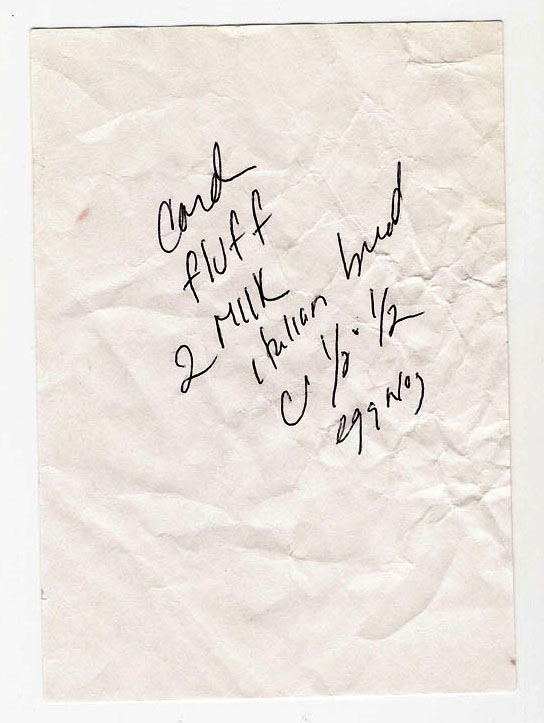 Card
fluff
2 MIlK
italian bread
1/2 · 1/2
eggnog